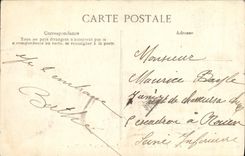 CARTE POSTALE
Correspondance
Adresse
Tous les pays étrangers n'acceptent pas la
correspondance au recto. Se renseigner à la poste.
Je t'embrasse
Berthe
Monsieur
Maurice
de chasseurs
escadron à Rouen
Seine Inférieure